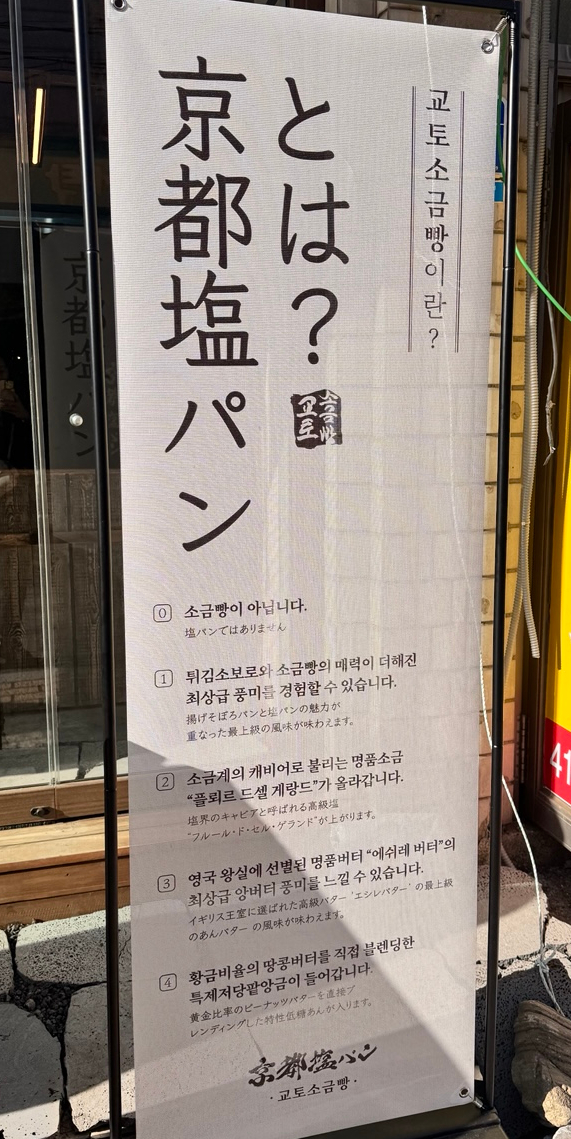 교토소금빵이란?
京都塩パン
とは?
교토
소금빵
0 소금빵이 아닙니다.
塩パンではありません
1 튀김소보로와 소금빵의 매력이 더해진
최상급 풍미를 경험할 수 있습니다.
揚げそぼろパンと塩パンの魅力が
重なった最上級の風味が味わえます。
2 소금계의 캐비어로 불리는 명품소금
“플뢰르 드셀 게랑드”가 올라갑니다.
塩界のキャビアと呼ばれる高級塩
“フルール・ド・セル・ゲランド”が上がります。
3 영국 왕실에 선별된 명품버터 “에쉬레 버터”의
최상급 앙버터 풍미를 느낄 수 있습니다.
イギリス王室に選ばれた高級バター ‘エシレバター’ の最上級
のあんバター の風味が味わえます。
4 황금비율의 땅콩버터를 직접 블렌딩한
특제저당팥앙금이 들어갑니다.
黄金比率のピーナッツバターを直接ブ
レンディングした特性低糖あんが入ります。
京都塩パン
·교토소금빵·
京都塩パン
41